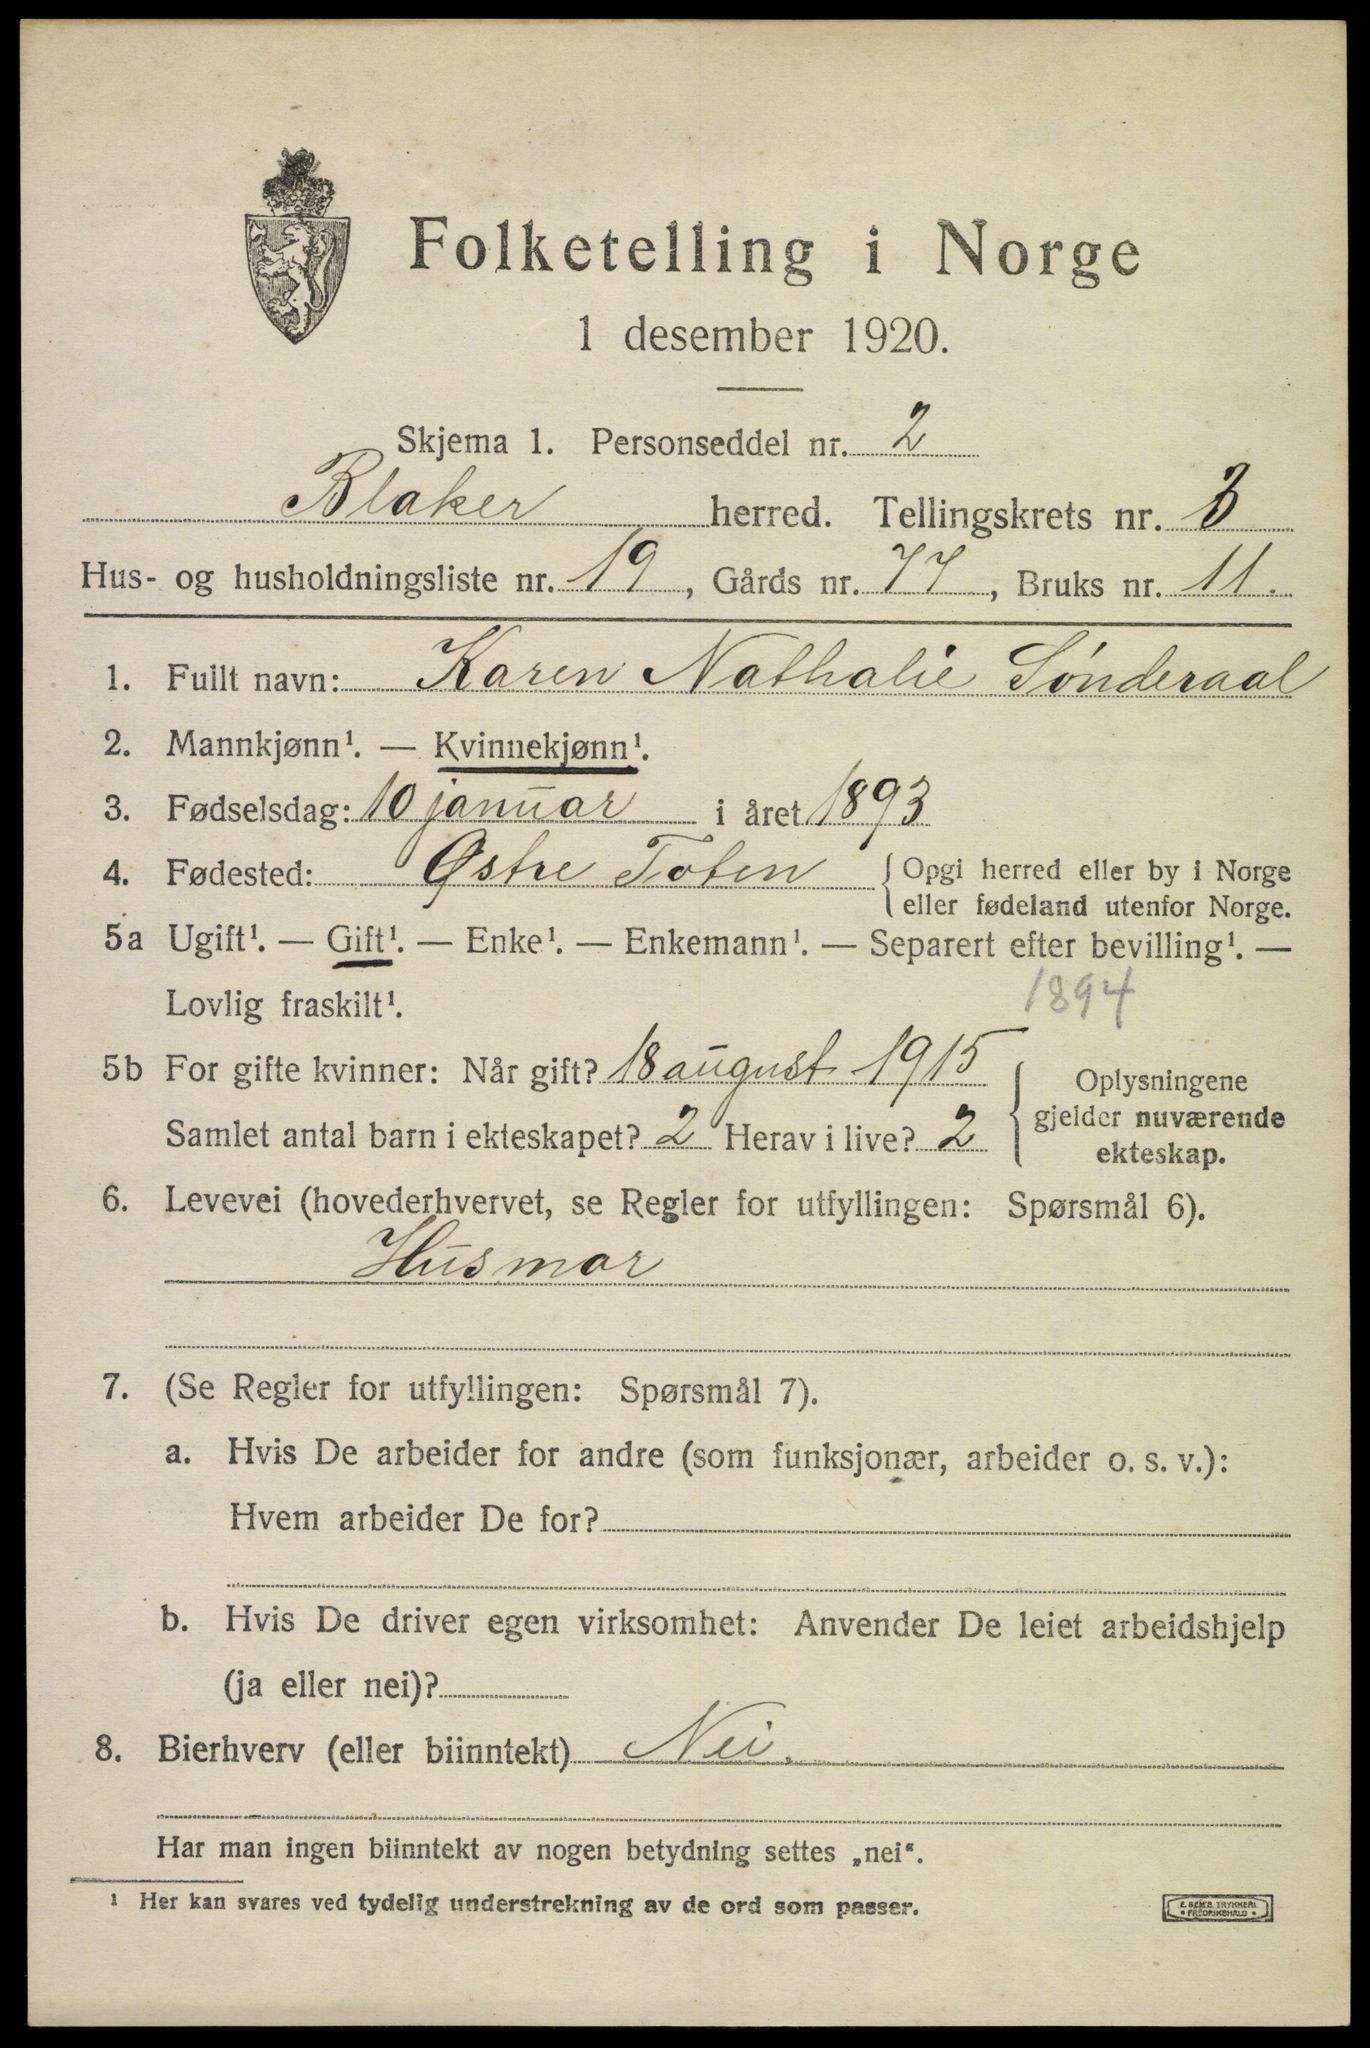 Folketelling i Norge
1 desember 1920.
Skjema 1. Personseddel nr. 2
Blaker herred. Tellingskrets nr. 3
Hus- og husholdningsliste nr. 19, Gårds nr. 77, Bruks nr. 11.
1. Fullt navn: Karen Nathalie Sønderaal
2. Mannkjønn¹. — Kvinnekjønn¹.
3. Fødselsdag: 10 januar i året 1893
4. Fødested: Østre Toten { Opgi herred eller by i Norge
eller fødeland utenfor Norge.
5a Ugift¹. — Gift¹. — Enke¹. — Enkemann¹. — Separert efter bevilling¹. —
Lovlig fraskilt¹. 1894
5b For gifte kvinner: Når gift? 18 august 1915 { Oplysningene
gjelder nuværende
Samlet antal barn i ekteskapet? 2 Herav i live? 2
ekteskap.
6. Levevei (hovederhvervet, se Regler for utfyllingen: Spørsmål 6).
Husmor
7. (Se Regler for utfyllingen: Spørsmål 7).
a. Hvis De arbeider for andre (som funksjonær, arbeider o. s. v.):
Hvem arbeider De for?
b. Hvis De driver egen virksomhet: Anvender De leiet arbeidshjelp
(ja eller nei)?
8. Bierhverv (eller biinntekt) Nei.
Har man ingen biinntekt av nogen betydning settes „nei“.
¹ Her kan svares ved tydelig understrekning av de ord som passer.
E. SEM'S TRYKKERI
FREDRIKSHALD